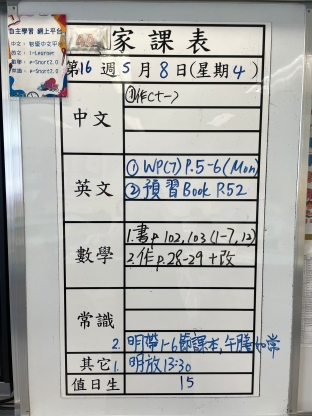 自主學習 網上平台
中文：智愛中文平台
英文：i-Learner
數學：e-Smart2.0
常識：e-Smart2.0
家課表
第16週5月8日(星期4)
中文
①作(十一)
英文
① WP(7) P.5-6(Mon)
② 預習Book P.52
數學
1.書p.102,103(1-7,12)
2.作p.28-29+改
常識
2. 明帶1-6節課本,午膳如常
其它
1. 明放13:30
值日生
15